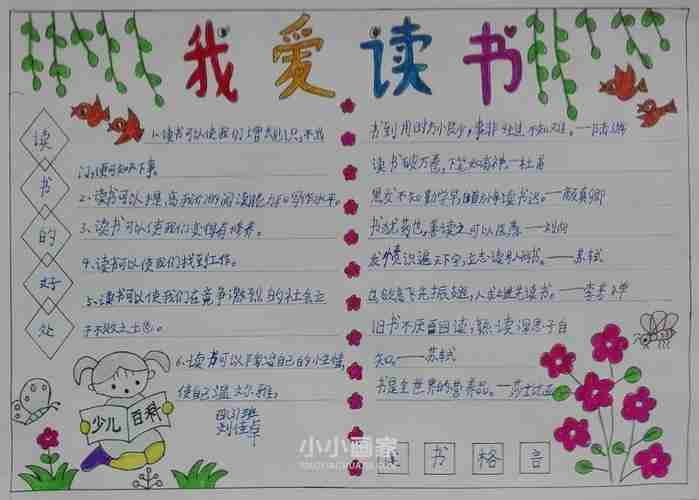 我爱读书
读书的好处
1、读书可以使我们增长知识,不出
门,便可知天下事。
2、读书可以提高我们的阅读能力和写作水平。
3、读书可以使我们变得有修养。
4、读书可以使我们找到工作。
5、读书可以使我们在竞争激烈的社会立
于不败之土也。
6、读书可以陶冶自己的小王情,
使自己温文尔雅。
四(1)班
刘佳卓
少儿 百科
书到用时方恨少,事非经过不知难。——陆游
读书破万卷,下笔如有神。——杜甫
黑发不知勤学早,白首方悔读书迟。——颜真卿
书犹药也,善读之可以医愚。——刘向
发愤识遍天下字,立志读尽人间书。——苏轼
鸟欲高飞先振翅,人求上进先读书。——李苦禅
旧书不厌百回读,熟读深思子自
知。——苏轼
书是全世界的营养品。——莎士比亚
读书格言
小小画家